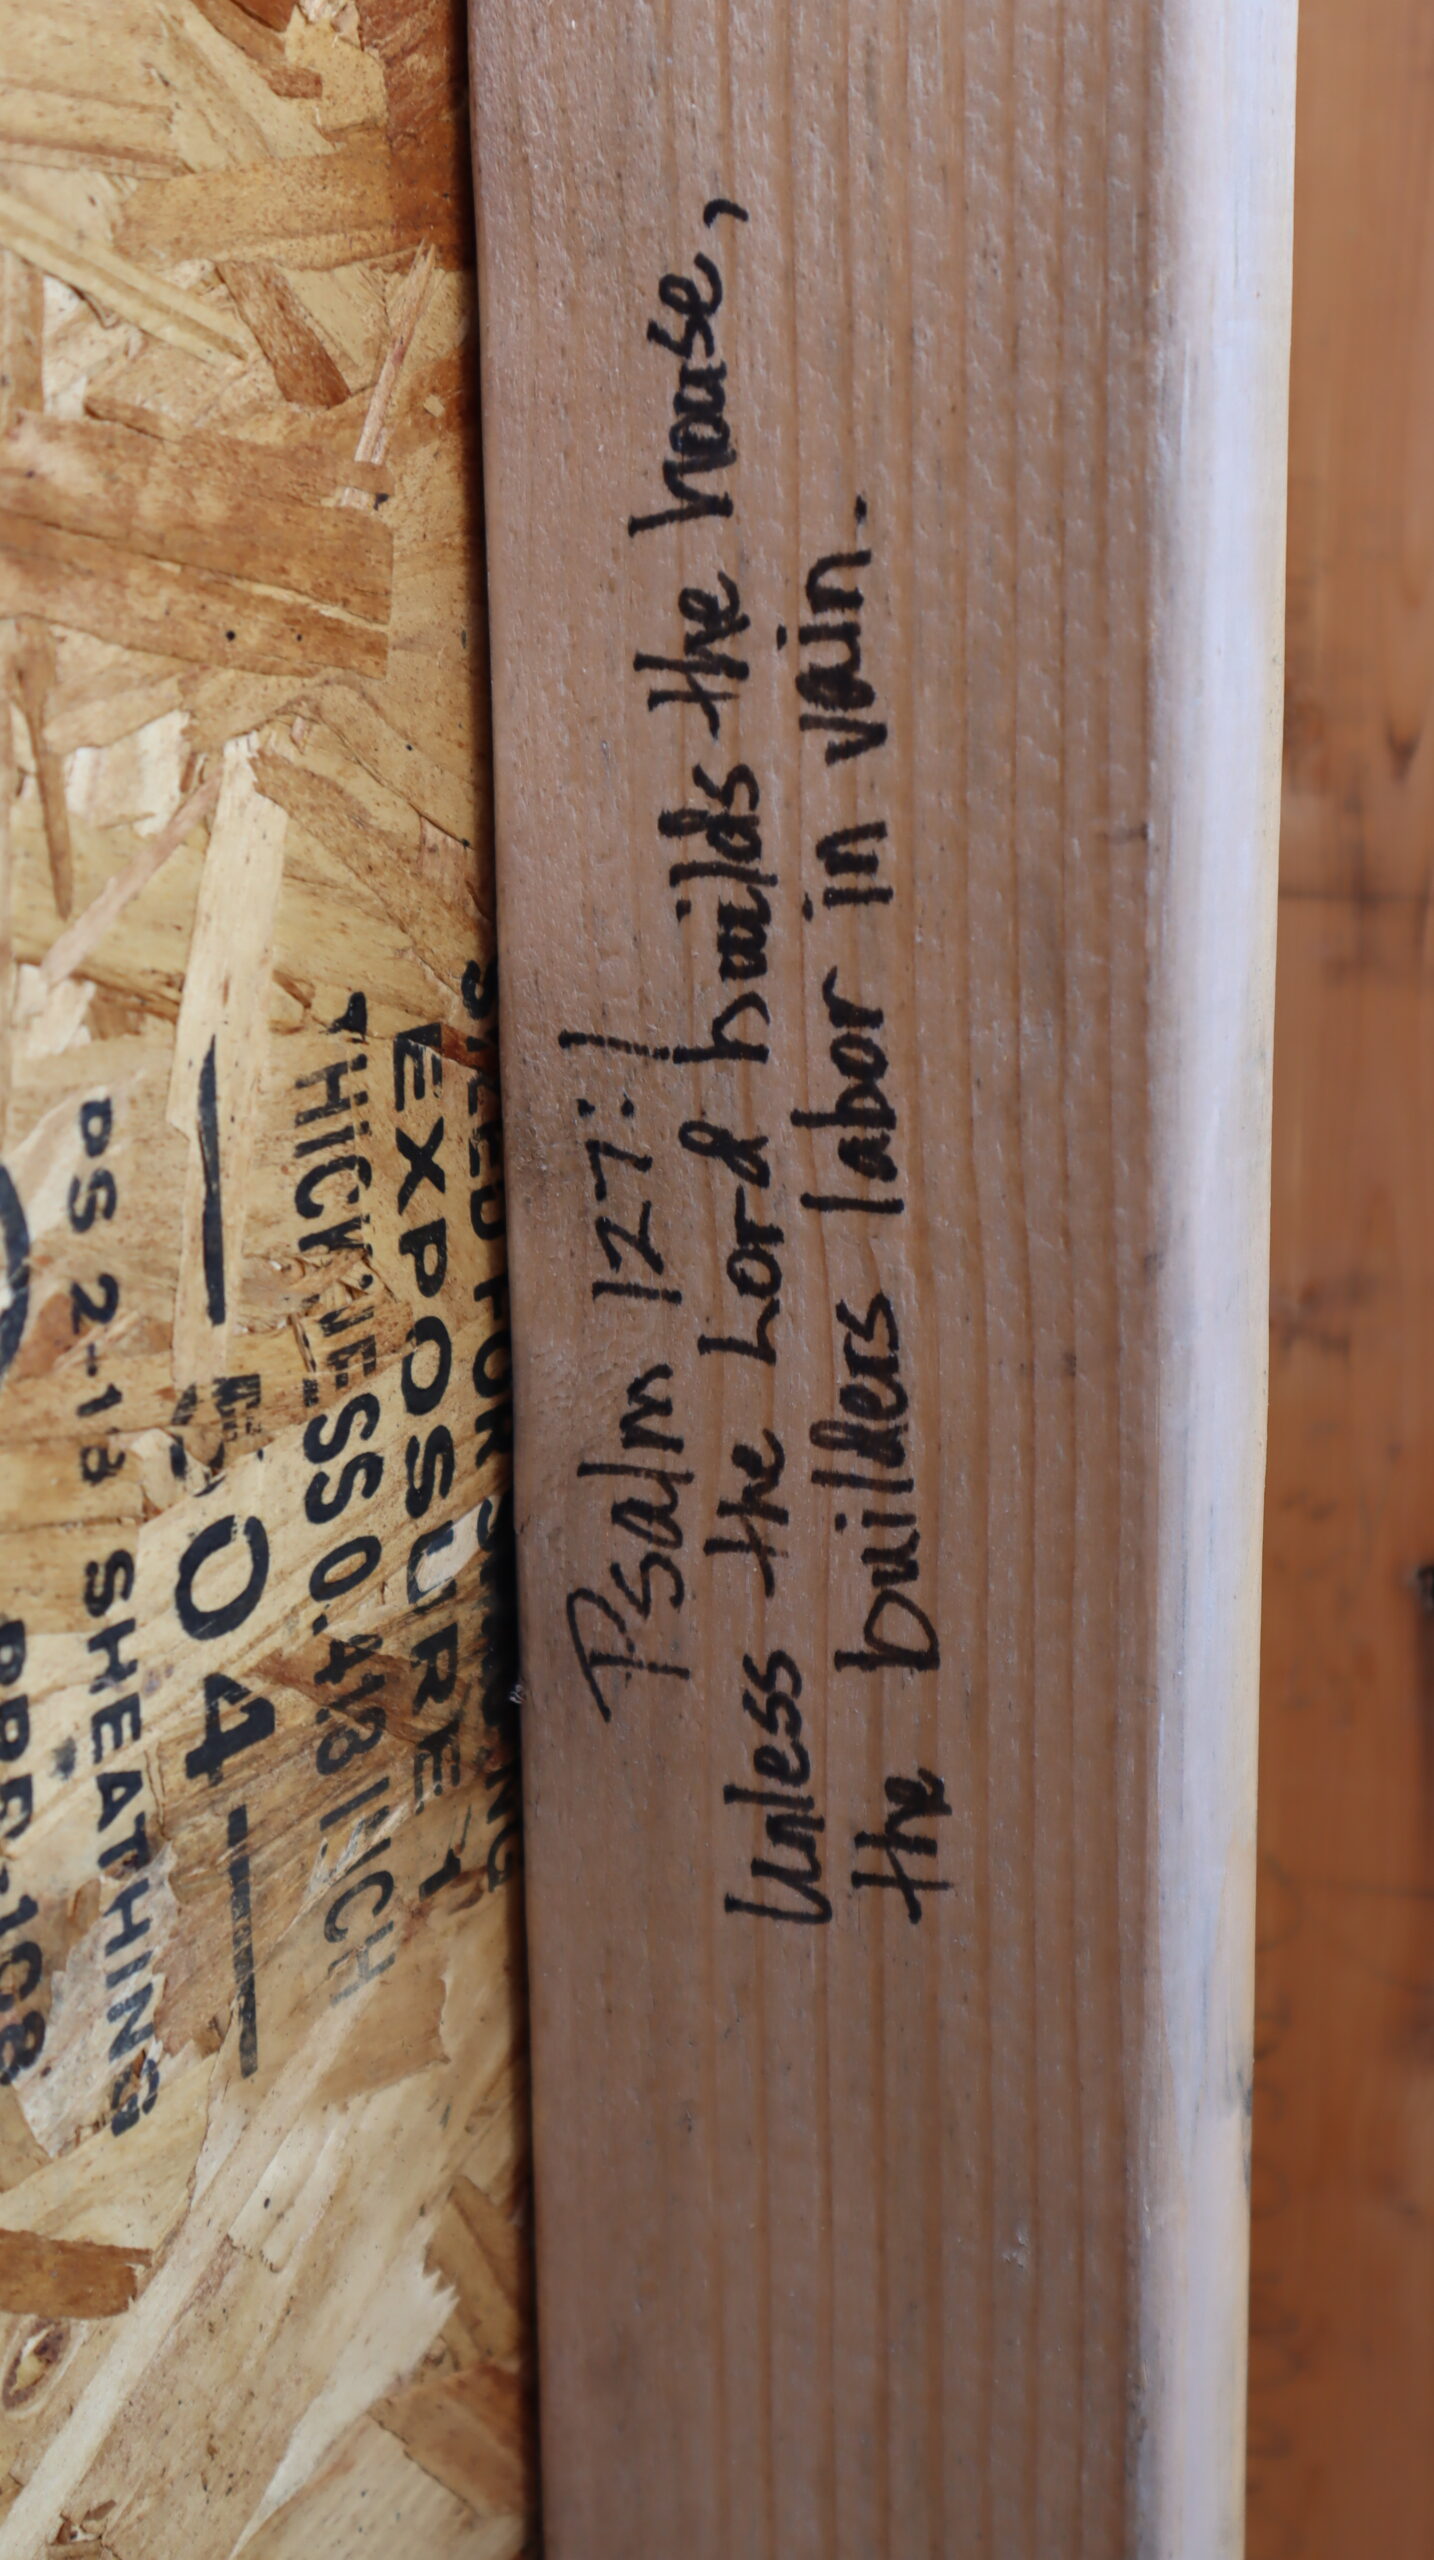 Psalm 127:1
Unless the Lord builds the house,
the builders labor in vain.
EXPOSURE 1
THICKNESS 0.418 INCH
DS 2-18
SHEATHING